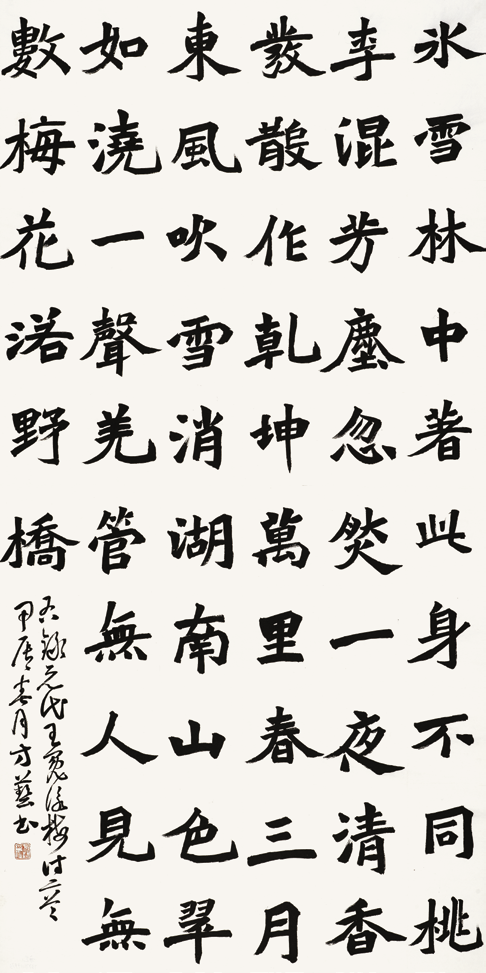 冰雪林中著此身不同桃
李混芳塵忽然一夜清香
發散作乾坤萬里春三月
東風吹雪消湖南山色翠
如澆一聲羌管無人見無
數梅花落野橋
右錄元代王冕詠梅詩二首
甲辰春月方书